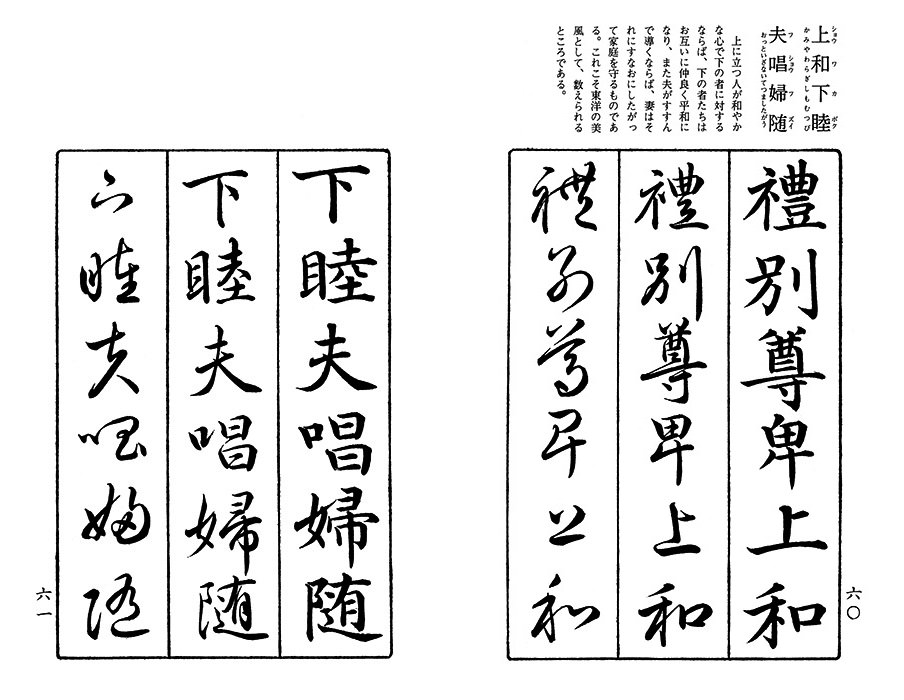 ショウワカボク
上和下睦
かみやわらぎしもむつび
フショウフズイ
夫唱婦随
おっといざないてつましたがう
上に立つ人が和やか
な心で下の者に対する
ならば、下の者たちは
お互いに仲良く平和に
なり、また夫がすすん
で導くならば、妻はそ
れにすなおにしたがっ
て家庭を守るものであ
る。これこそ東洋の美
風として、数えられる
ところである。
禮別尊卑上和
禮別尊卑上和
禮別尊卑上和
六〇
下睦夫唱婦随
下睦夫唱婦随
下睦夫唱婦随
六一